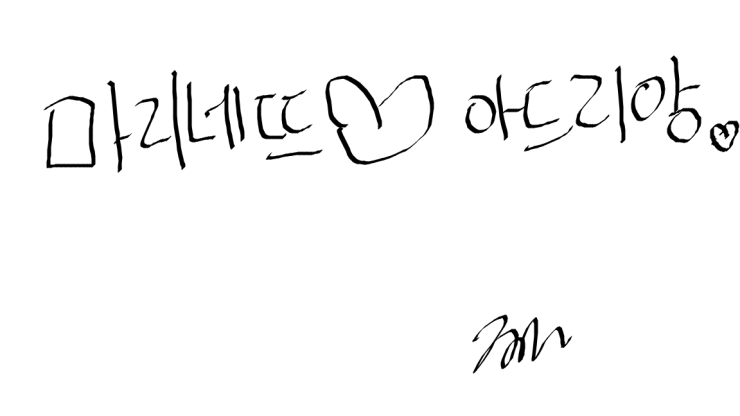 마리네뜨♡ 아드리앙♡